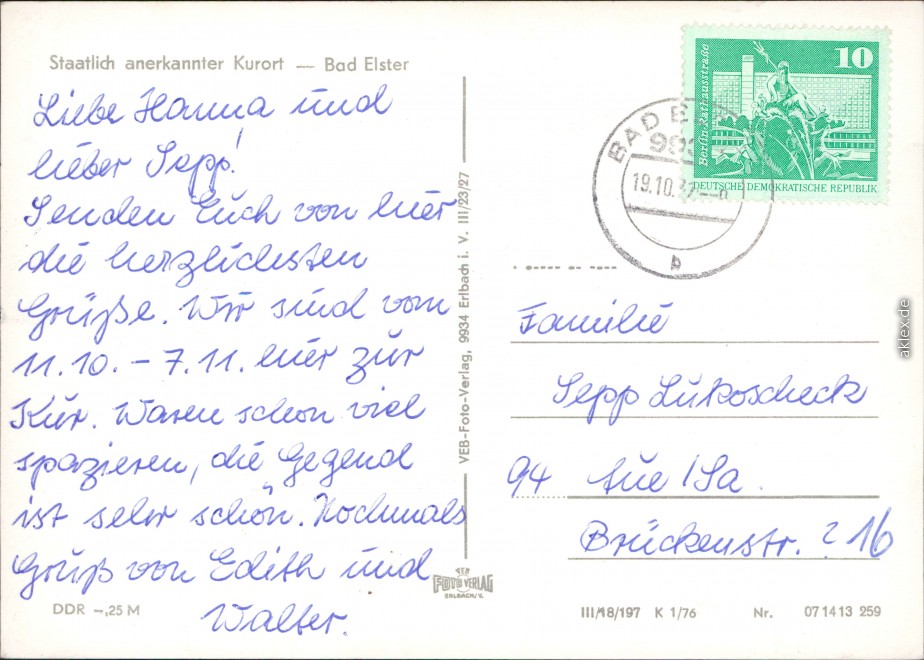 Staatlich anerkannter Kurort — Bad Elster
Liebe Hanna und
lieber Sepp!
Senden Euch von hier
die herzlichsten
Grüße. Wir sind vom
11.10. – 7.11. hier zur
Kur. Waren schon viel
spazieren, die Gegend
ist sehr schön. Nochmals
Gruß von Edith und
Walter.
DDR –,25 M
VEB-Foto-Verlag, 9934 Erlbach i. V. III/23/27
FOTO VERLAG
ERLBACH/V.
10
Berlin-Rathausstraße
DEUTSCHE DEMOKRATISCHE REPUBLIK
BAD
19.10.
b
Familie
Sepp Lukoscheck
94 Aue/Sa.
Brückenstr. ? 16
III/18/197 K 1/76 Nr. 07 14 13 259
aklex.de